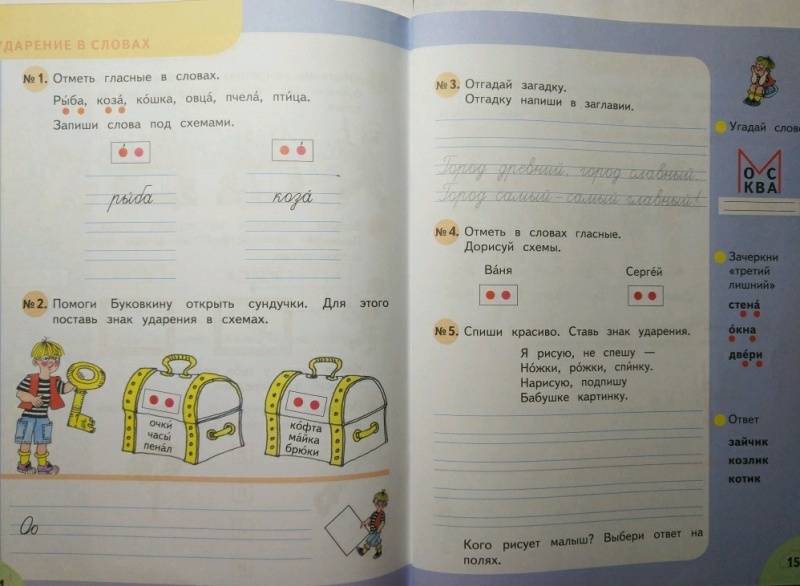 УДАРЕНИЕ В СЛОВАХ
№1. Отметь гласные в словах.
Ры́ба, коза́, ко́шка, овца́, пчела́, пти́ца.
Запиши слова под схемами.
ры́ба
коза́
№2. Помоги Буковкину открыть сундучки. Для этого
поставь знак ударения в схемах.
очки́
часы́
пена́л
ко́фта
ма́йка
брю́ки
Оо
№3. Отгадай загадку.
Отгадку напиши в заглавии.
Город древний, город славный.
Город самый-самый главный!
№4. Отметь в словах гласные.
Дорисуй схемы.
Ва́ня
Серге́й
№5. Спиши красиво. Ставь знак ударения.
Я рисую, не спешу —
Но́жки, ро́жки, спи́нку.
Нарисую, подпишу
Бабушке картинку.
Кого рисует малыш? Выбери ответ на
полях.
Угадай слово
М
О С
КВА
Зачеркни
«третий
лишний»
стена́
о́кна
две́ри
Ответ
зайчик
козлик
котик
15